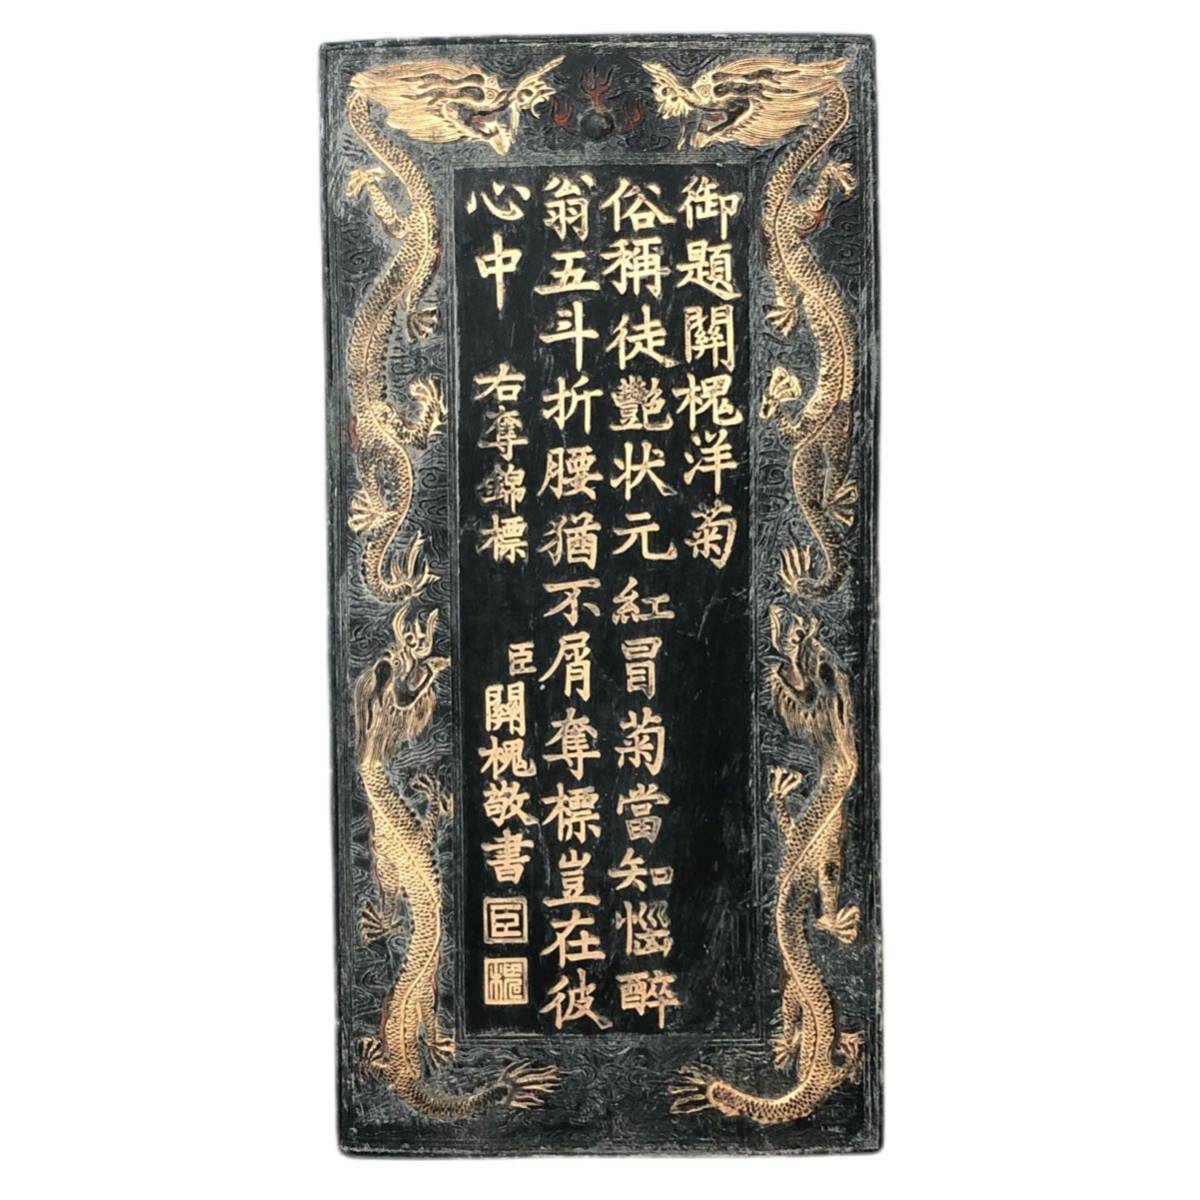 御題關槐洋菊
俗稱徒艷状元紅冒菊當知惱醉
翁五斗折腰猶不屑奪標豈在彼
心中
右奪錦標
臣關槐敬書
臣
槐